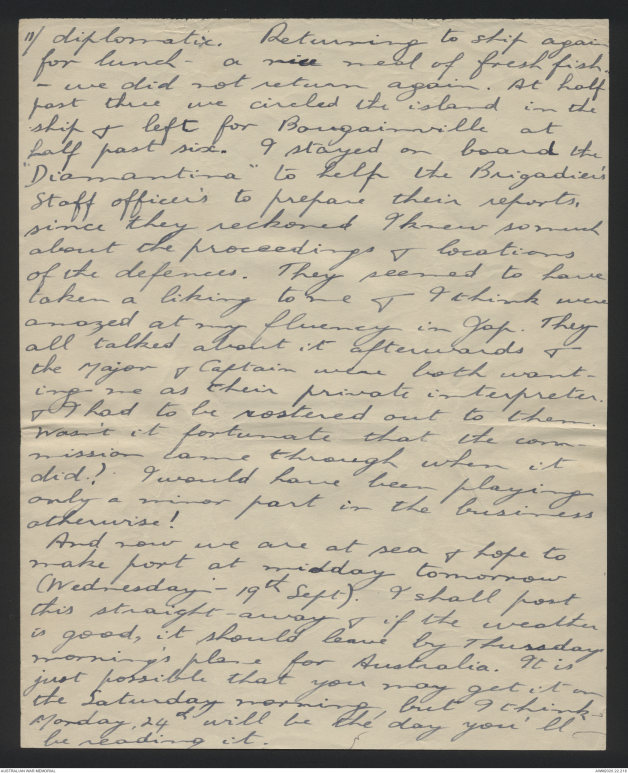 18/ diplomatic. Returning to ship again
for lunch - a nice meal of fresh fish.
- we did not return again. At half
past three we circled the island in the
ship & left for Bougainville at
half past six. I stayed on board the
"Diamantina" to help the Brigadier's
Staff officers to prepare their reports,
since they reckoned I knew so much
about the proceedings & locations
of the defences. They seemed to have
taken a liking to me & I think were
amazed at my fluency in Jap. They
all talked about it afterwards &
the Major & Captain were both want-
ing me as their private interpreter.
& I had to be rostered out to them.
Wasn't it fortunate that the com-
mission came through when it
did? I would have been playing
only a minor part in the business
otherwise!
And now we are at sea & hope to
make port at midday tomorrow
(Wednesday - 19th Sept). I shall post
this straight-away & if the weather
is good, it should leave by Thursday
morning's plane for Australia. It is
just possible that you may get it on
the Saturday morning, but I think
Monday, 24th will be the day you'll
be reading it.
AUSTRALIAN WAR MEMORIAL